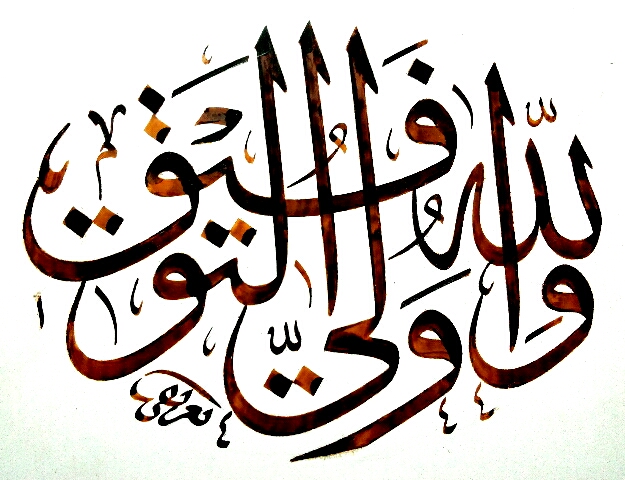 والله ولي التوفيق